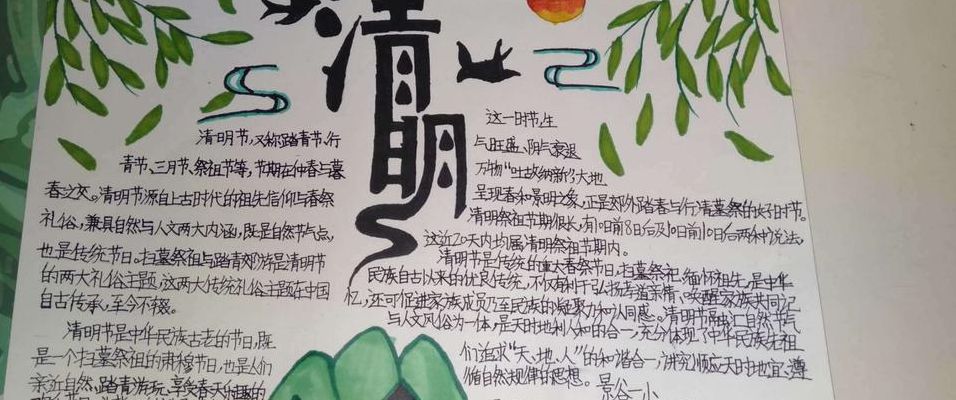 清明
清明节,又称踏青节、行
青节、三月节、祭祖节等,节期在仲春与暮
春之交。清明节源自上古时代的祖先信仰与春祭
礼俗,兼具自然与人文两大内涵,既是自然节气点,
也是传统节日。扫墓祭祖与踏青郊游是清明节
的两大礼俗主题,这两大传统礼俗主题在中国
自古传承,至今不辍。
清明节是中华民族古老的节日,既
是一个扫墓祭祖的肃穆节日,也是人们
亲近自然、踏青游玩、享受春天乐趣的
这一时节,生
气旺盛、阴气衰退
万物"吐故纳新"大地
呈现春和景明之象,正是郊外踏春与行清墓祭的好时节。
清明祭祖节期很长,有10日前8日后及10日前10日后两种说法,
这近20天内均属清明祭祖节期内。
清明节是传统的重大春祭节日,扫墓祭祀、缅怀祖先,是中华
民族自古以来的优良传统,不仅有利于弘扬孝道亲情、唤醒家族共同记
忆,还可促进家族成员乃至民族的凝聚力和认同感。清明节融汇自然节气
与人文风俗为一体,是天时地利人和的合一,充分体现了中华民族先祖
们追求"天、地、人"的和谐合一,讲究顺应天时地宜、遵
循自然规律的思想。景谷一小